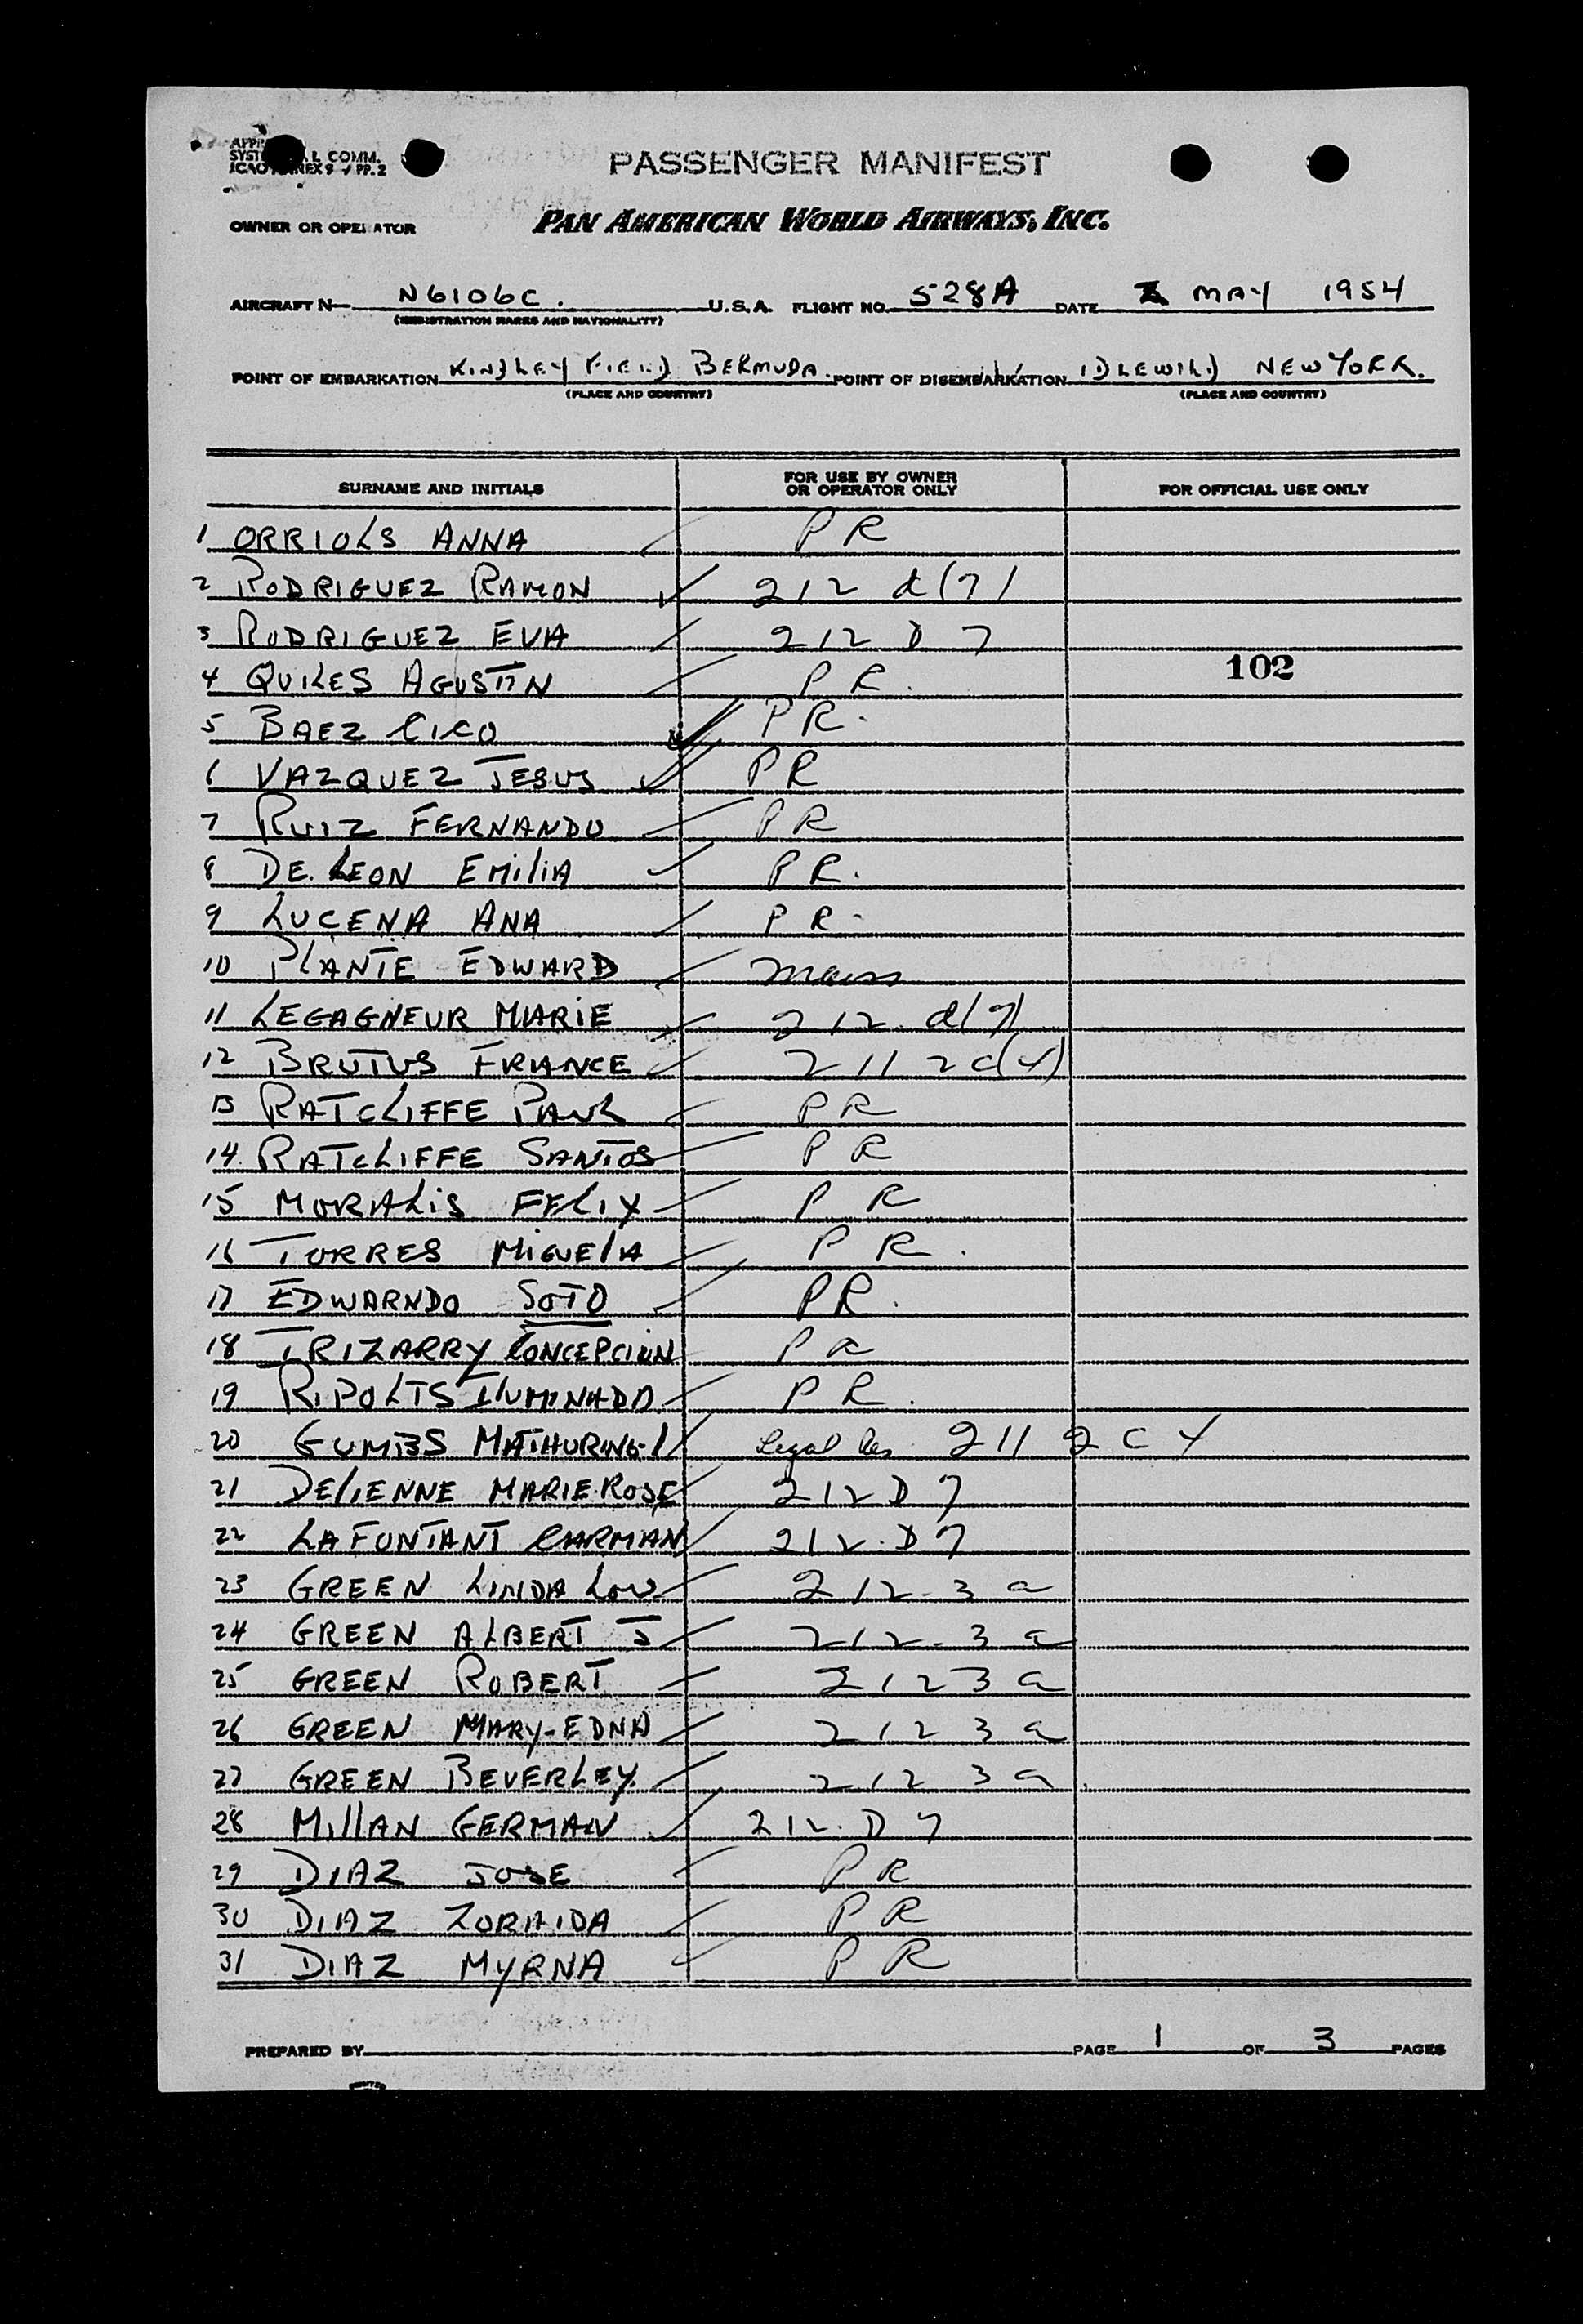 PASSENGER MANIFEST
L COMM.
PP. 2
OWNER OR OPERATOR PAN AMERICAN WORLD AIRWAYS, INC.
AIRCRAFT N— N6106C. U.S.A. FLIGHT NO. 528A DATE MAY 1954
(REGISTRATION MARKS AND NATIONALITY)
POINT OF EMBARKATION KINDLEY FIELD BERMUDA. POINT OF DISEMBARKATION IDLEWILD NEW YORK.
(PLACE AND COUNTRY) (PLACE AND COUNTRY)
SURNAME AND INITIALS FOR USE BY OWNER OR OPERATOR ONLY FOR OFFICIAL USE ONLY
1 ORRIOLS ANNA PR
2 RODRIGUEZ RAMON 212 d(7)
3 RODRIGUEZ EVA 212 D 7
4 QUILES AGUSTIN PR. 102
5 BAEZ CICO PR.
6 VAZQUEZ JESUS PR
7 RUIZ FERNANDO PR
8 DE. LEON EMILIA PR.
9 LUCENA ANA PR.
10 PLANTE EDWARD
11 LEGAGNEUR MARIE 212 d(7)
12 BRUTUS FRANCE 211 2c(4)
13 RATCLIFFE PAUL PR
14. RATCLIFFE SANTOS PR
15 MORALIS FELIX PR
16 TORRES MIGUELA PR.
17 EDWARNDO SOTO PR.
18 IRIZARRY CONCEPCION PR
19 RIPOLTS ILUMINADO PR.
20 GUMBS MATHURING-1 legal res 211 2 C 4
21 DELIENNE MARIE-ROSE 212 D 7
22 LAFONTANT CARMAN 212. D 7
23 GREEN LINDA LOU 212-3 a
24 GREEN ALBERT J 212-3 a
25 GREEN ROBERT 212 3 a
26 GREEN MARY-EDNA 212 3 a
27 GREEN BEVERLEY. 212 3 a
28 MILLAN GERMAN 212. D 7
29 DIAZ JOSE PR
30 DIAZ ZORAIDA PR
31 DIAZ MYRNA PR
PREPARED BY PAGE 1 OF 3 PAGES